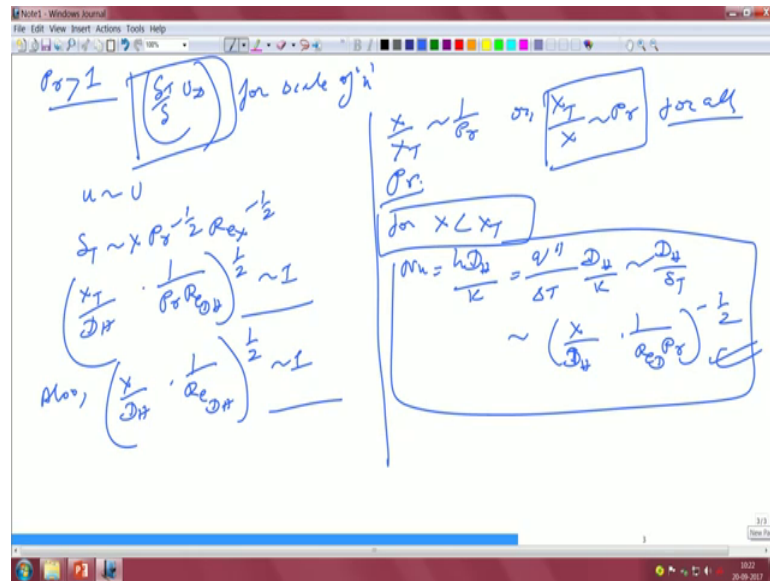 Note1 - Windows Journal
File Edit View Insert Actions Tools Help
100%
B I
Pr > 1 (δT/δ U∞) for scale of 'u'
u ~ U
δT ~ x Pr^-1/2 Rex^-1/2
(xT/DH · 1/(Pr ReDH))^1/2 ~ 1
Also, (x/DH · 1/ReDH)^1/2 ~ 1
x/xT ~ 1/Pr or, xT/x ~ Pr for all
Pr.
for x < xT
Nu = hDH/K = q''/ΔT DH/K ~ DH/δT
~ (x/DH · 1/(ReD Pr))^-1/2
3/3
3
New Pa
10:22
20-09-2017